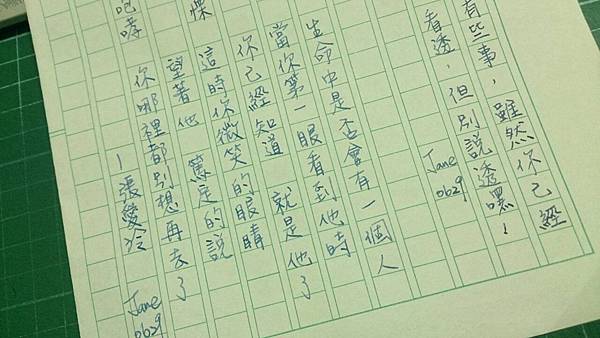 有些事，雖然你已經
看透，但別說透嘿！
Jane
0629
生命中是否會有一個人
當你第一眼看到他時
你已經知道 就是他了
這時你微笑的眼睛
慄
望著他 篤定的說
你哪裡都別想再去了
咆哮
—張愛玲
Jane
0629